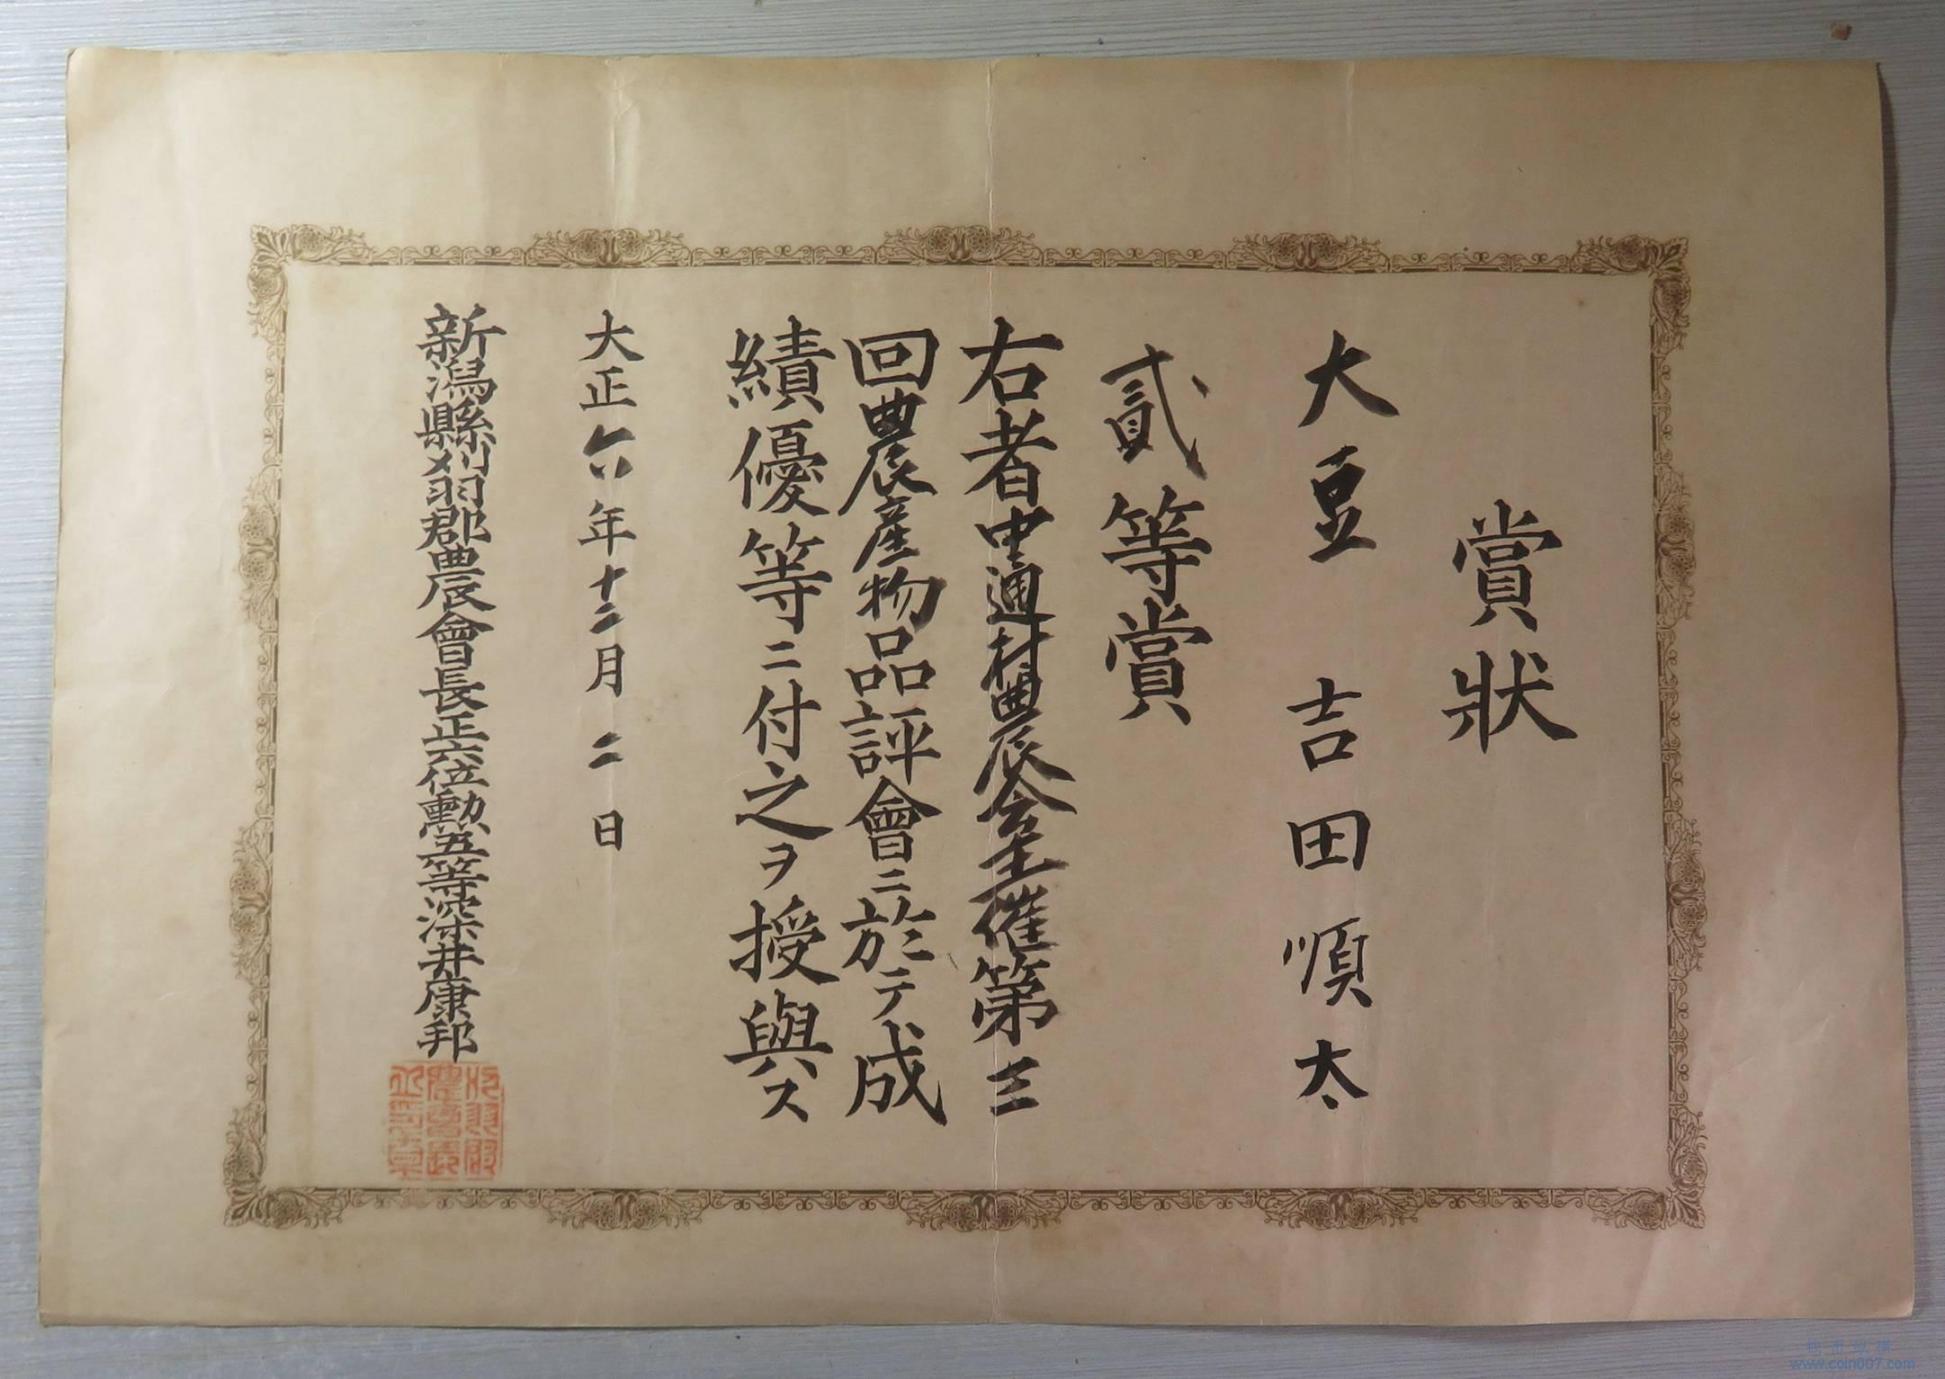 賞狀
大豆 吉田順太
貳等賞
右者中通村農会主催第三
回農産物品評會ニ於テ成
績優等ニ付之ヲ授與ス
大正六年十二月二日
新潟縣刈羽郡農會長正六位勳五等深井康邦
www.coin007.com